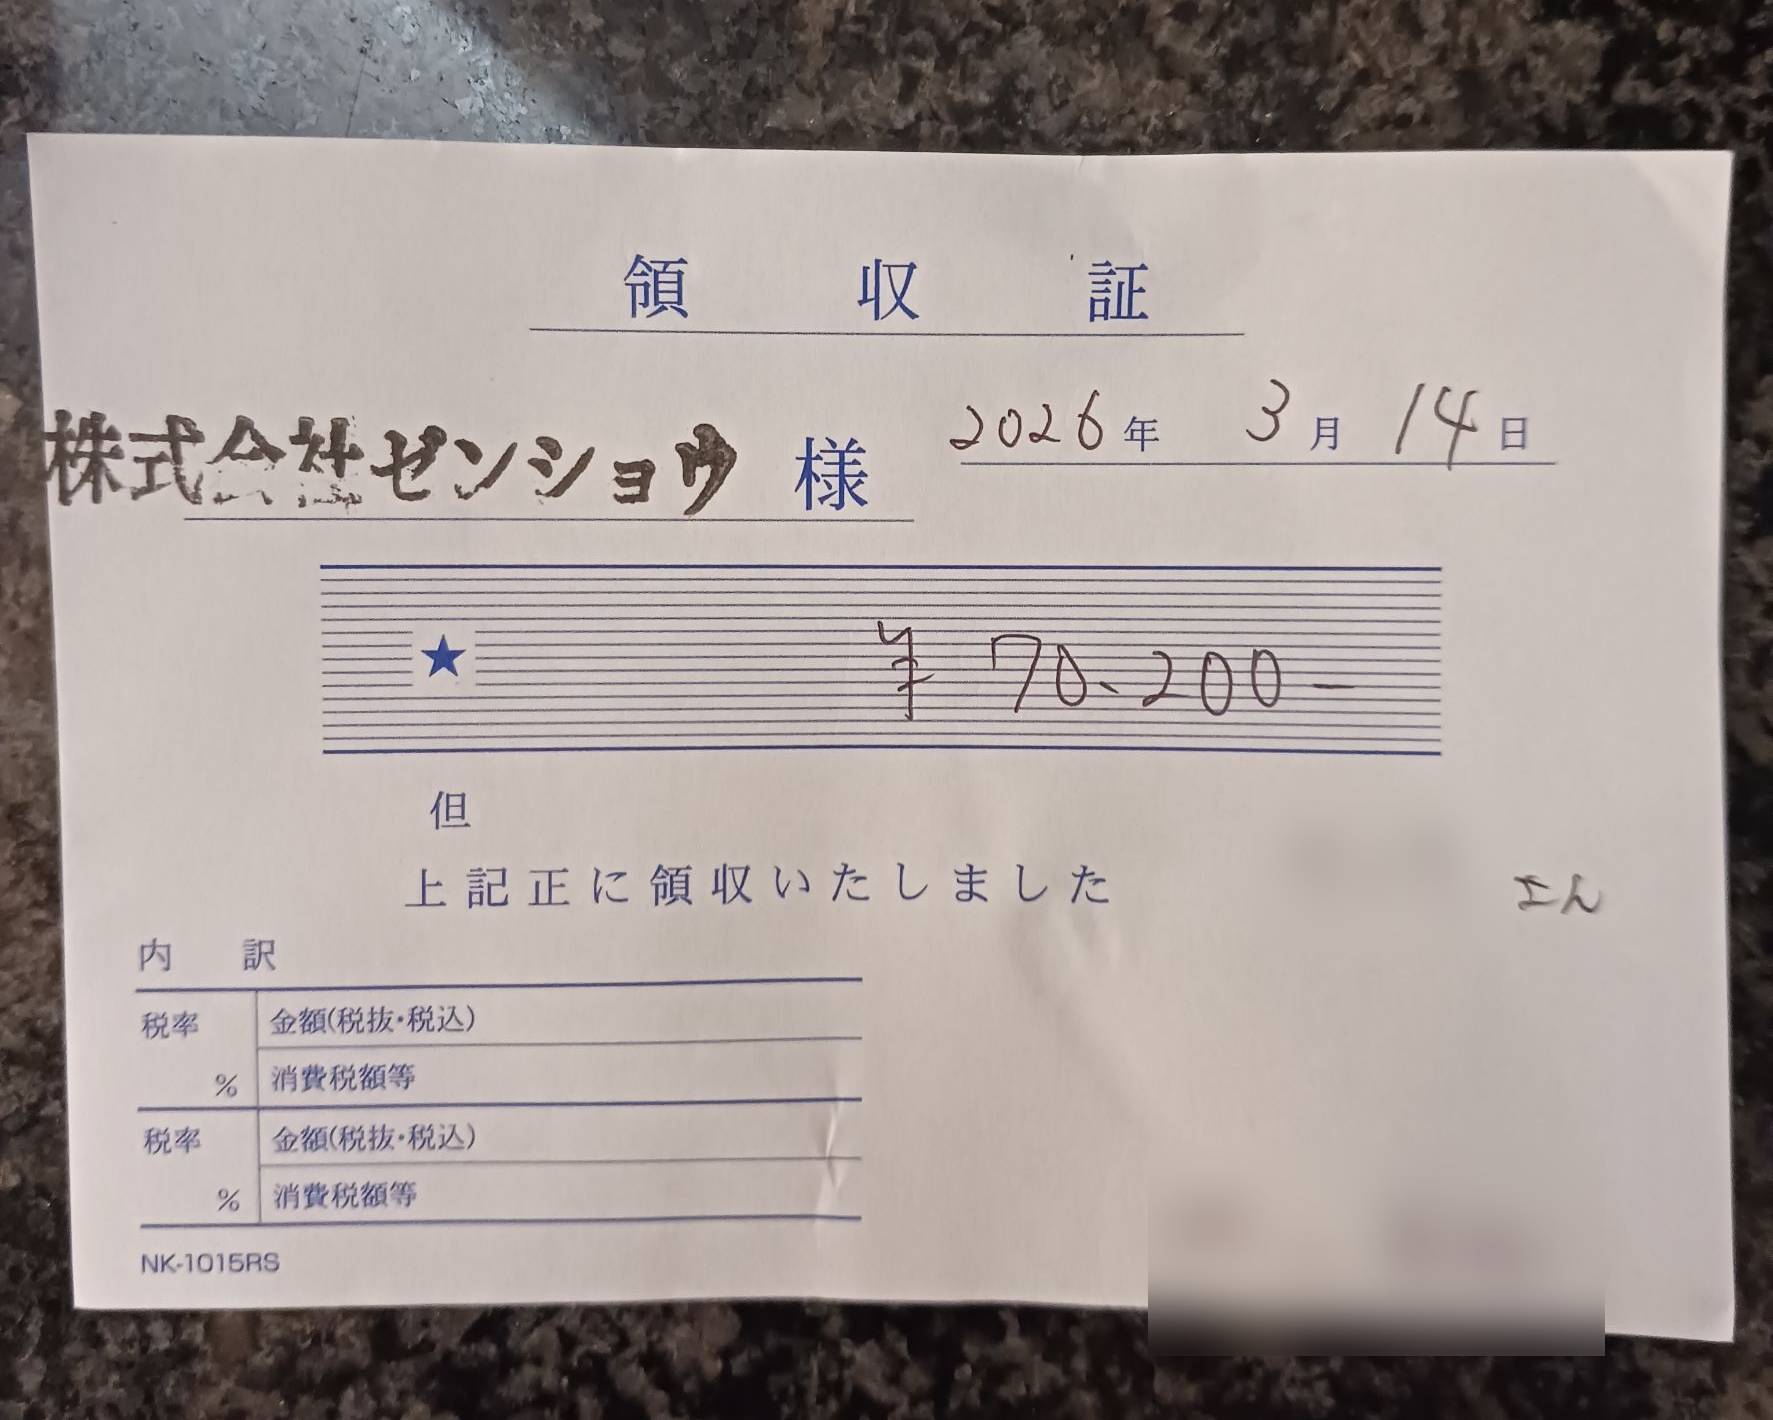 領収証
株式会社ゼンショウ 様
2026年 3月 14日
★ ¥70.200-
但
上記正に領収いたしました
内訳
税率 %
金額(税抜・税込)
消費税額等
税率 %
金額(税抜・税込)
消費税額等
NK-1015RS